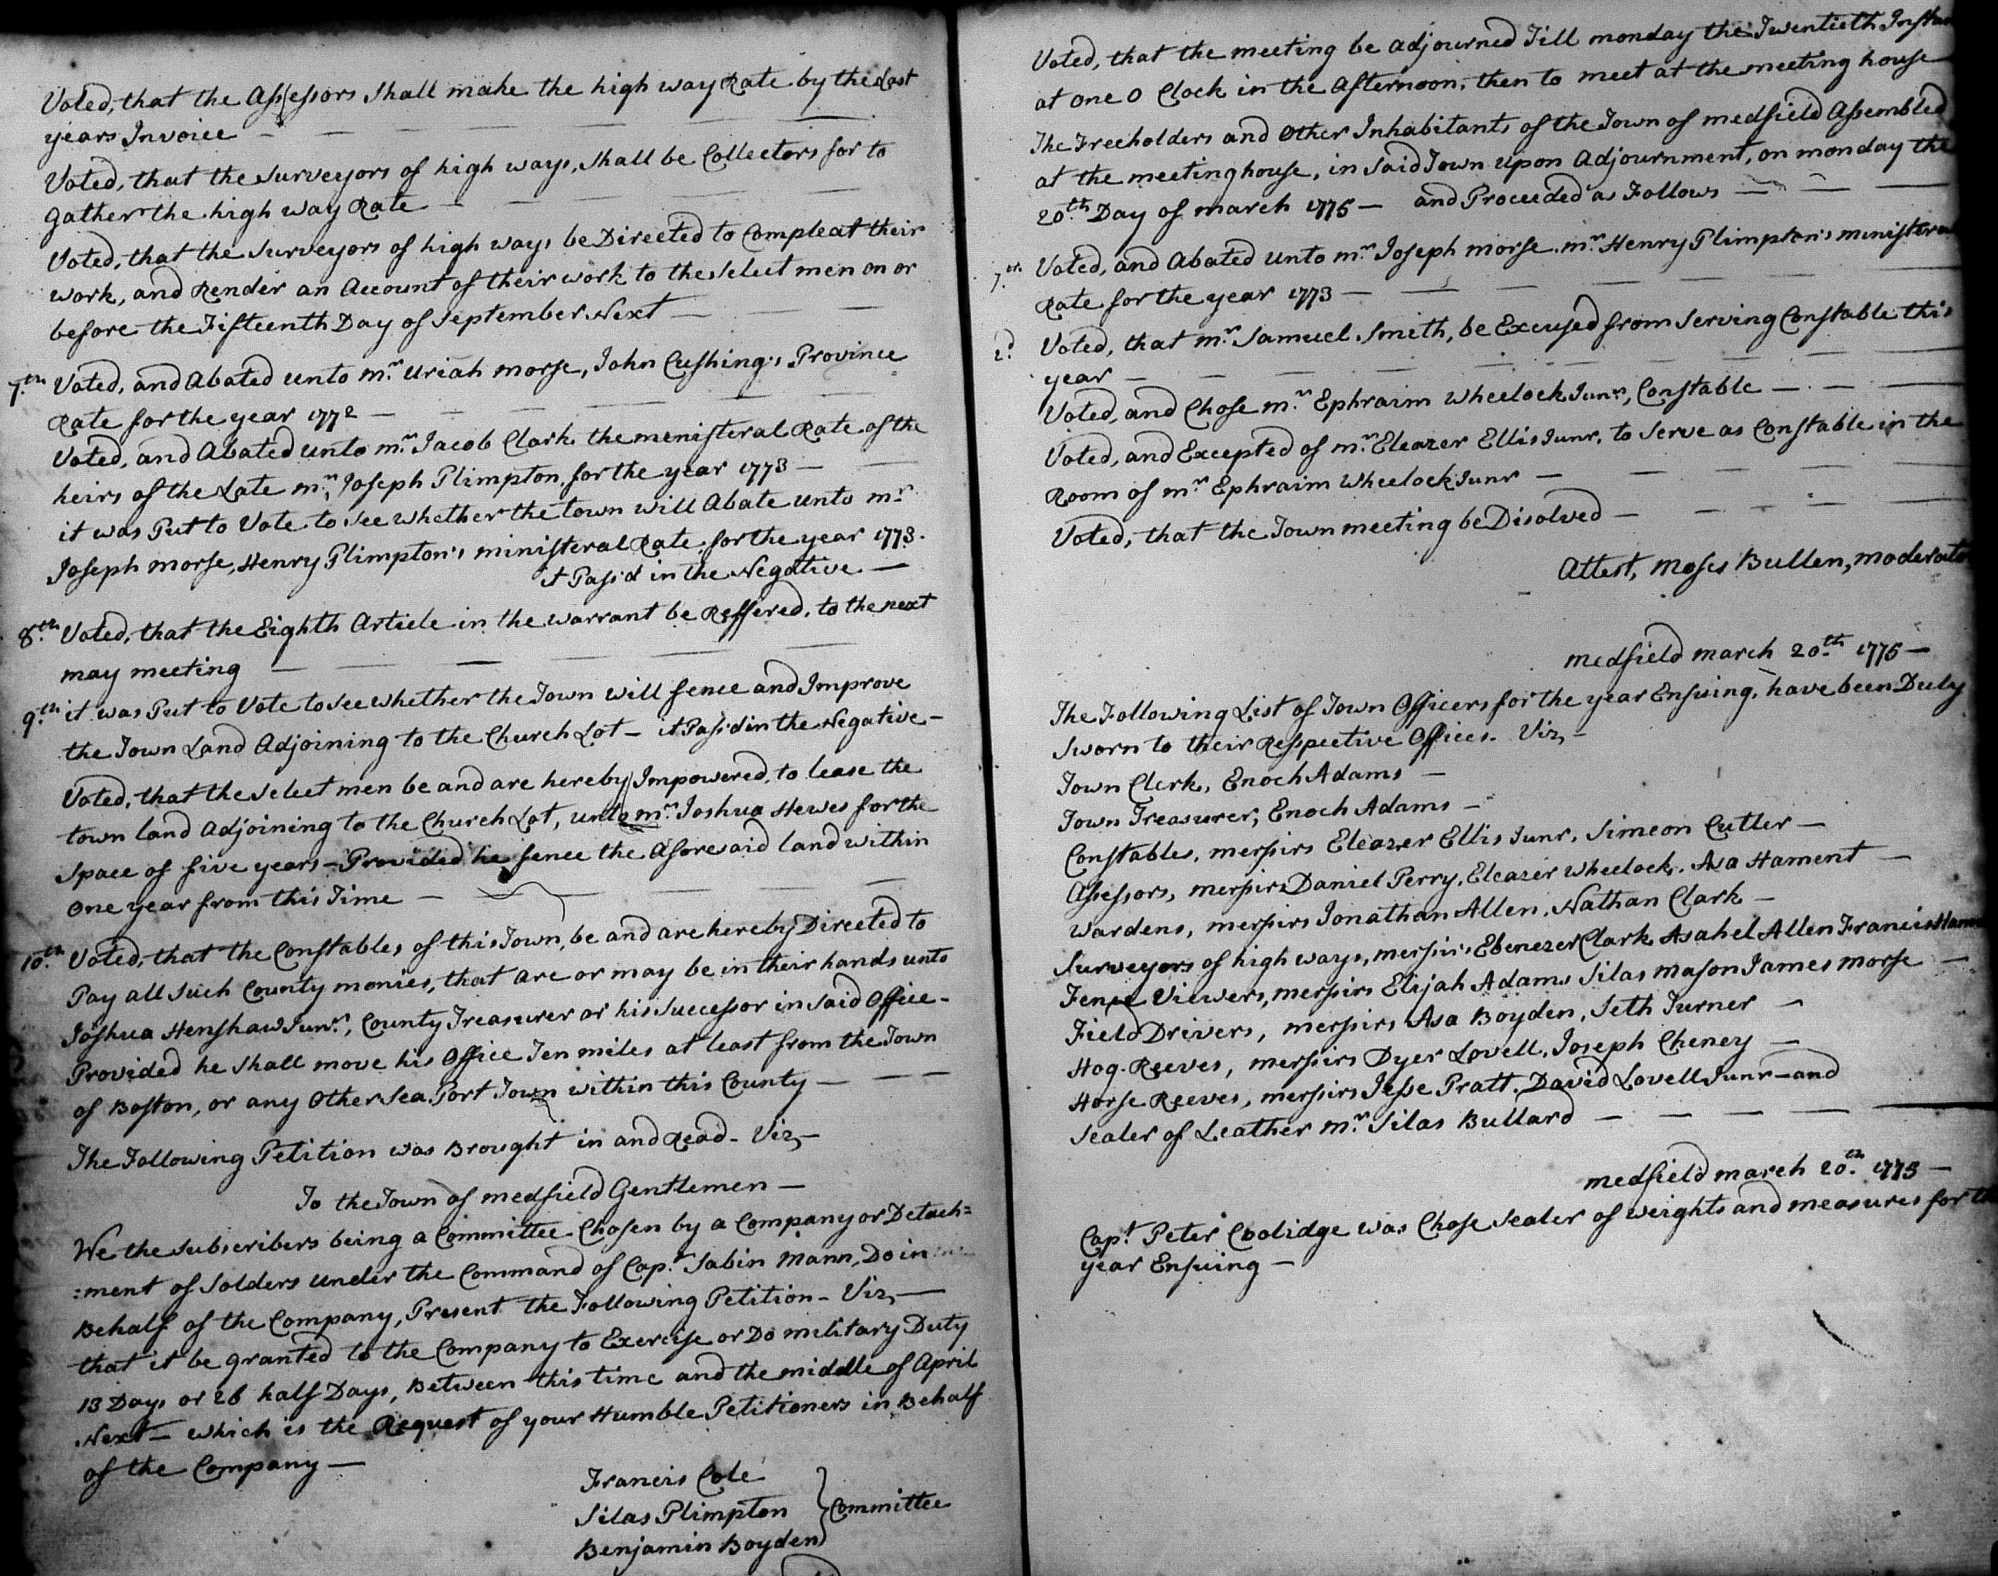 Voted, that the Assessors Shall make the high way Rate by the Last
years Invoice
Voted, that the Surveyors of high ways, Shall be Collectors for to
gather the high way Rate
Voted, that the Surveyors of high ways be Directed to Compleat their
work, and Render an Account of their work to the Select men on or
before the Fifteenth Day of September Next
7th Voted, and Abated unto mr Uriah morse, John Cushing's Province
Rate for the year 1772
Voted, and Abated unto mr Jacob Clark the menisteral Rate of the
heirs of the Late mr Joseph Plimpton, for the year 1773
it was Put to Vote to See whether the town will Abate unto mr
Joseph morse, Henry Plimpton's ministeral Rate for the year 1773.
it Pass'd in the Negative
8th Voted, that the Eighth Article in the warrant be Reffered, to the next
may meeting
9th it was Put to Vote to See whether the Town will fence and Improve
the Town Land Adjoining to the Church Lot - it Pass'd in the Negative -
Voted, that the Select men be and are hereby Impowered, to lease the
town land Adjoining to the Church Lot, unto mr Joshua Hewes for the
Space of five years - Provided he fence the Aforesaid land within
one year from this Time
10th Voted, that the Constables of this Town, be and are hereby Directed to
Pay all Such County monies, that are or may be in their hands unto
Joshua Henshaw Junr, County Treasurer or his Successor in Said Office -
Provided he Shall move his Office Ten miles at least from the Town
of Boston, or any Other Sea Port Town within this County
The Following Petition was Brought in and Read - Viz,
To the Town of medfield Gentlemen
We the Subscribers being a Committee Chosen by a Company or Detach=
=ment of Solders under the Command of Capt Sabin Mann, Do in
Behalf of the Company, Present the Following Petition - Viz,
that it be granted to the Company to Exercise or Do military Duty
13 Days or 26 half Days, Between this time and the middle of April
Next - which is the Request of your Humble Petitioners in Behalf
of the Company
Francis Cole
Silas Plimpton } Committee
Benjamin Boyden
Voted, that the meeting be adjourned Till monday the Twentieth Instan
at one O Clock in the Afternoon, then to meet at the meeting house
The Freeholders and Other Inhabitants of the Town of medfield Assembled
at the meeting house, in Said Town upon Adjournment, on monday the
20th Day of march 1775 - and Proceeded as Follows
1st Voted, and Abated unto mr Joseph morse mr Henry Plimpton's ministeral
Rate for the year 1773
2d Voted, that mr Samuel Smith, be Excused from Serving Constable this
year
Voted, and Chose mr Ephraim Wheelock Junr, Constable
Voted, and Excepted of mr Eleazer Ellis Junr, to Serve as Constable in the
Room of mr Ephraim Wheelock Junr
Voted, that the Town meeting be Disolved
Attest, Moses Bullen, moderator
medfield march 20th 1775
The Following List of Town Officers for the year Ensuing, have been Duly
Sworn to their Respective Offices. Viz,
Town Clerk, Enoch Adams
Town Treasurer, Enoch Adams
Constables, messirs Eleazer Ellis Junr, Simeon Cutler
Assessors, messirs Daniel Perry, Eleazer Wheelock, Asa Hament
Wardens, messirs Jonathan Allen, Nathan Clark
Surveyors of high ways, messirs Ebenezer Clark Asahel Allen Francis Ham
Fence Viewers, messirs Elijah Adams Silas mason James morse
Field Drivers, messirs Asa Boyden, Seth Turner
Hog-Reeves, messirs Dyer Lovell, Joseph Cheney
Horse Reeves, messirs Jesse Pratt, David Lovell Junr - and
Sealer of Leather mr Silas Bullard
medfield march 20th 1775
Capt Peter Coolidge was Chose Sealer of weights and measures for the
year Ensuing